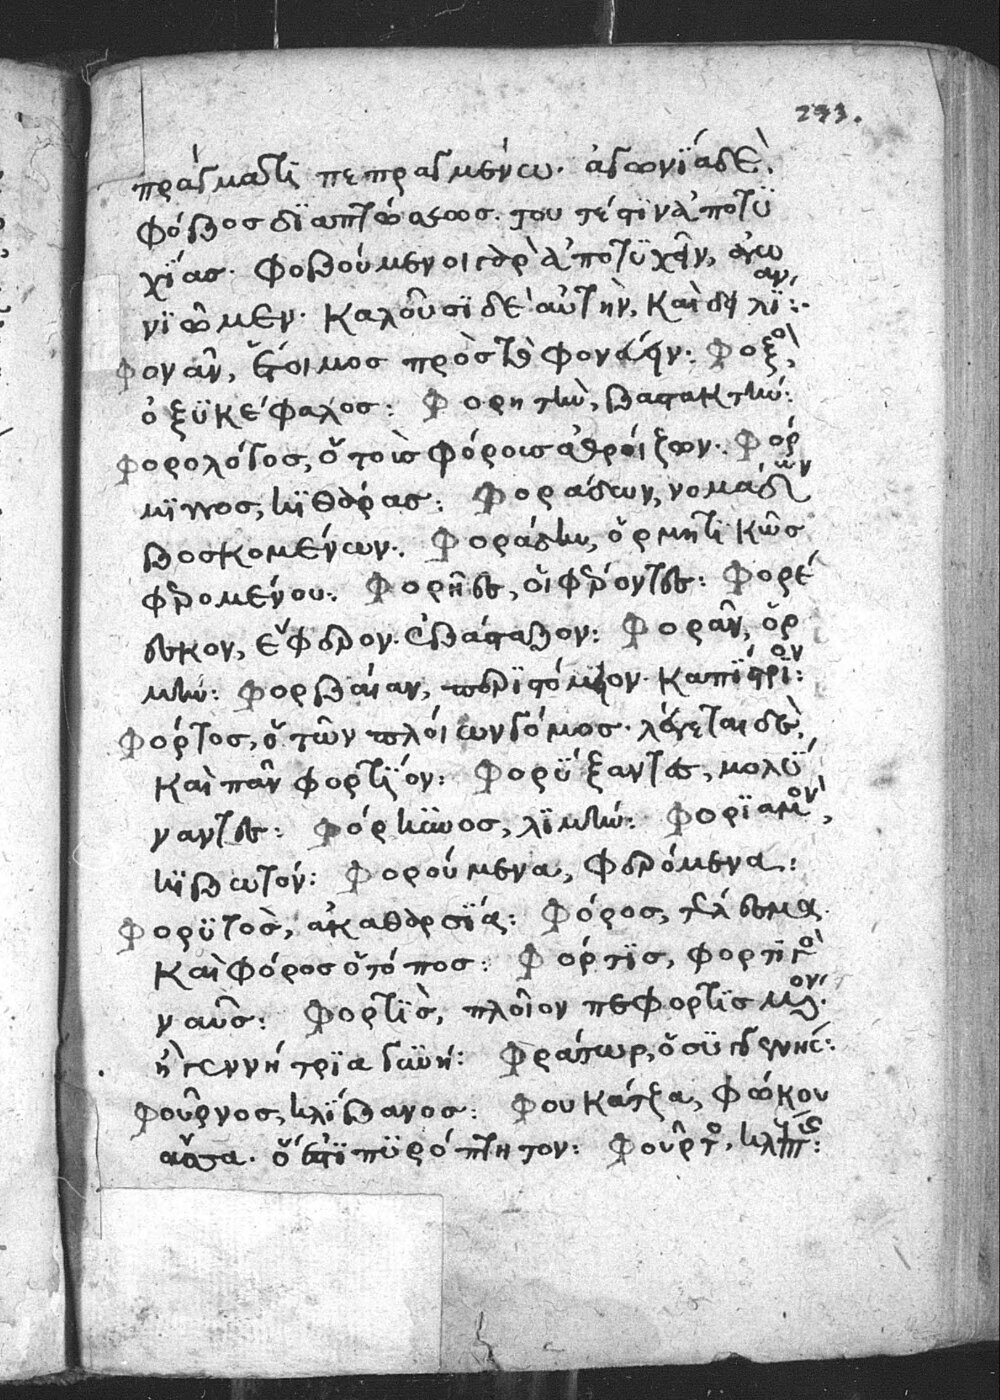 293.
πράγματι πεπραγμένω· ἀγωνΐα δὲ,
φόβος δϊαπτώσεως· τουτέστιν ἀποτϋ
χΐας· φοβούμενοι γὰρ ἀποτϋχεῖν, ἀγω
νϊῶμεν· καλοῦσϊ δὲ αὐτὴν, καὶ δειλΐαν:·
Φονᾶν, ἕτοιμος πρὸς τὸ φονεύειν: Φοξὸ,
ὀξϋκέφαλος: Φορητὴν, βαστακτήν:
Φορολόγος, ὁ τοὺς φόρους ἀθροίζων: Φόρ
μϊγγος, κϊθάρας: Φοράδων, νομάδων
βοσκομένων: Φοράδην, ὁρμητϊκῶς
φερομένου: Φορῆες, οἱ φέροντες: Φορέ
εσκον, ἔφερον· ἐβάσταζον: Φορὰν, ὁρ
μήν: Φορβαίαν, περϊστόμϊον· καπίστρϊον:
Φόρτος, ὁ τῶν πλοίων γόμος· λέγεται δὲ,
καὶ πᾶν φορτΐον: Φορΰξαντες, μολΰ
ναντες: Φόρκϋνος, λϊμήν: Φορϊαμὸν,
κϊβωτόν: Φορούμενα, φερόμενα:
Φορϋτὸς, ἀκαθαρσΐα: Φόρος, τέλεσμα
καὶ φόρος ὁ τόπος: Φόρτϊς, φορτϊκὸ
ναῦς: Φορτϊς, πλοῖον πεφορτϊσμένον·
ἢ γεννήτρϊα γυνή: Φράτωρ, ὁ συγγενής:
Φοῦρνος, κλίβανος: Φουκάτζα, φώκου
ὁ ἐστϊ πϋρό τον: Φοῦρτο,